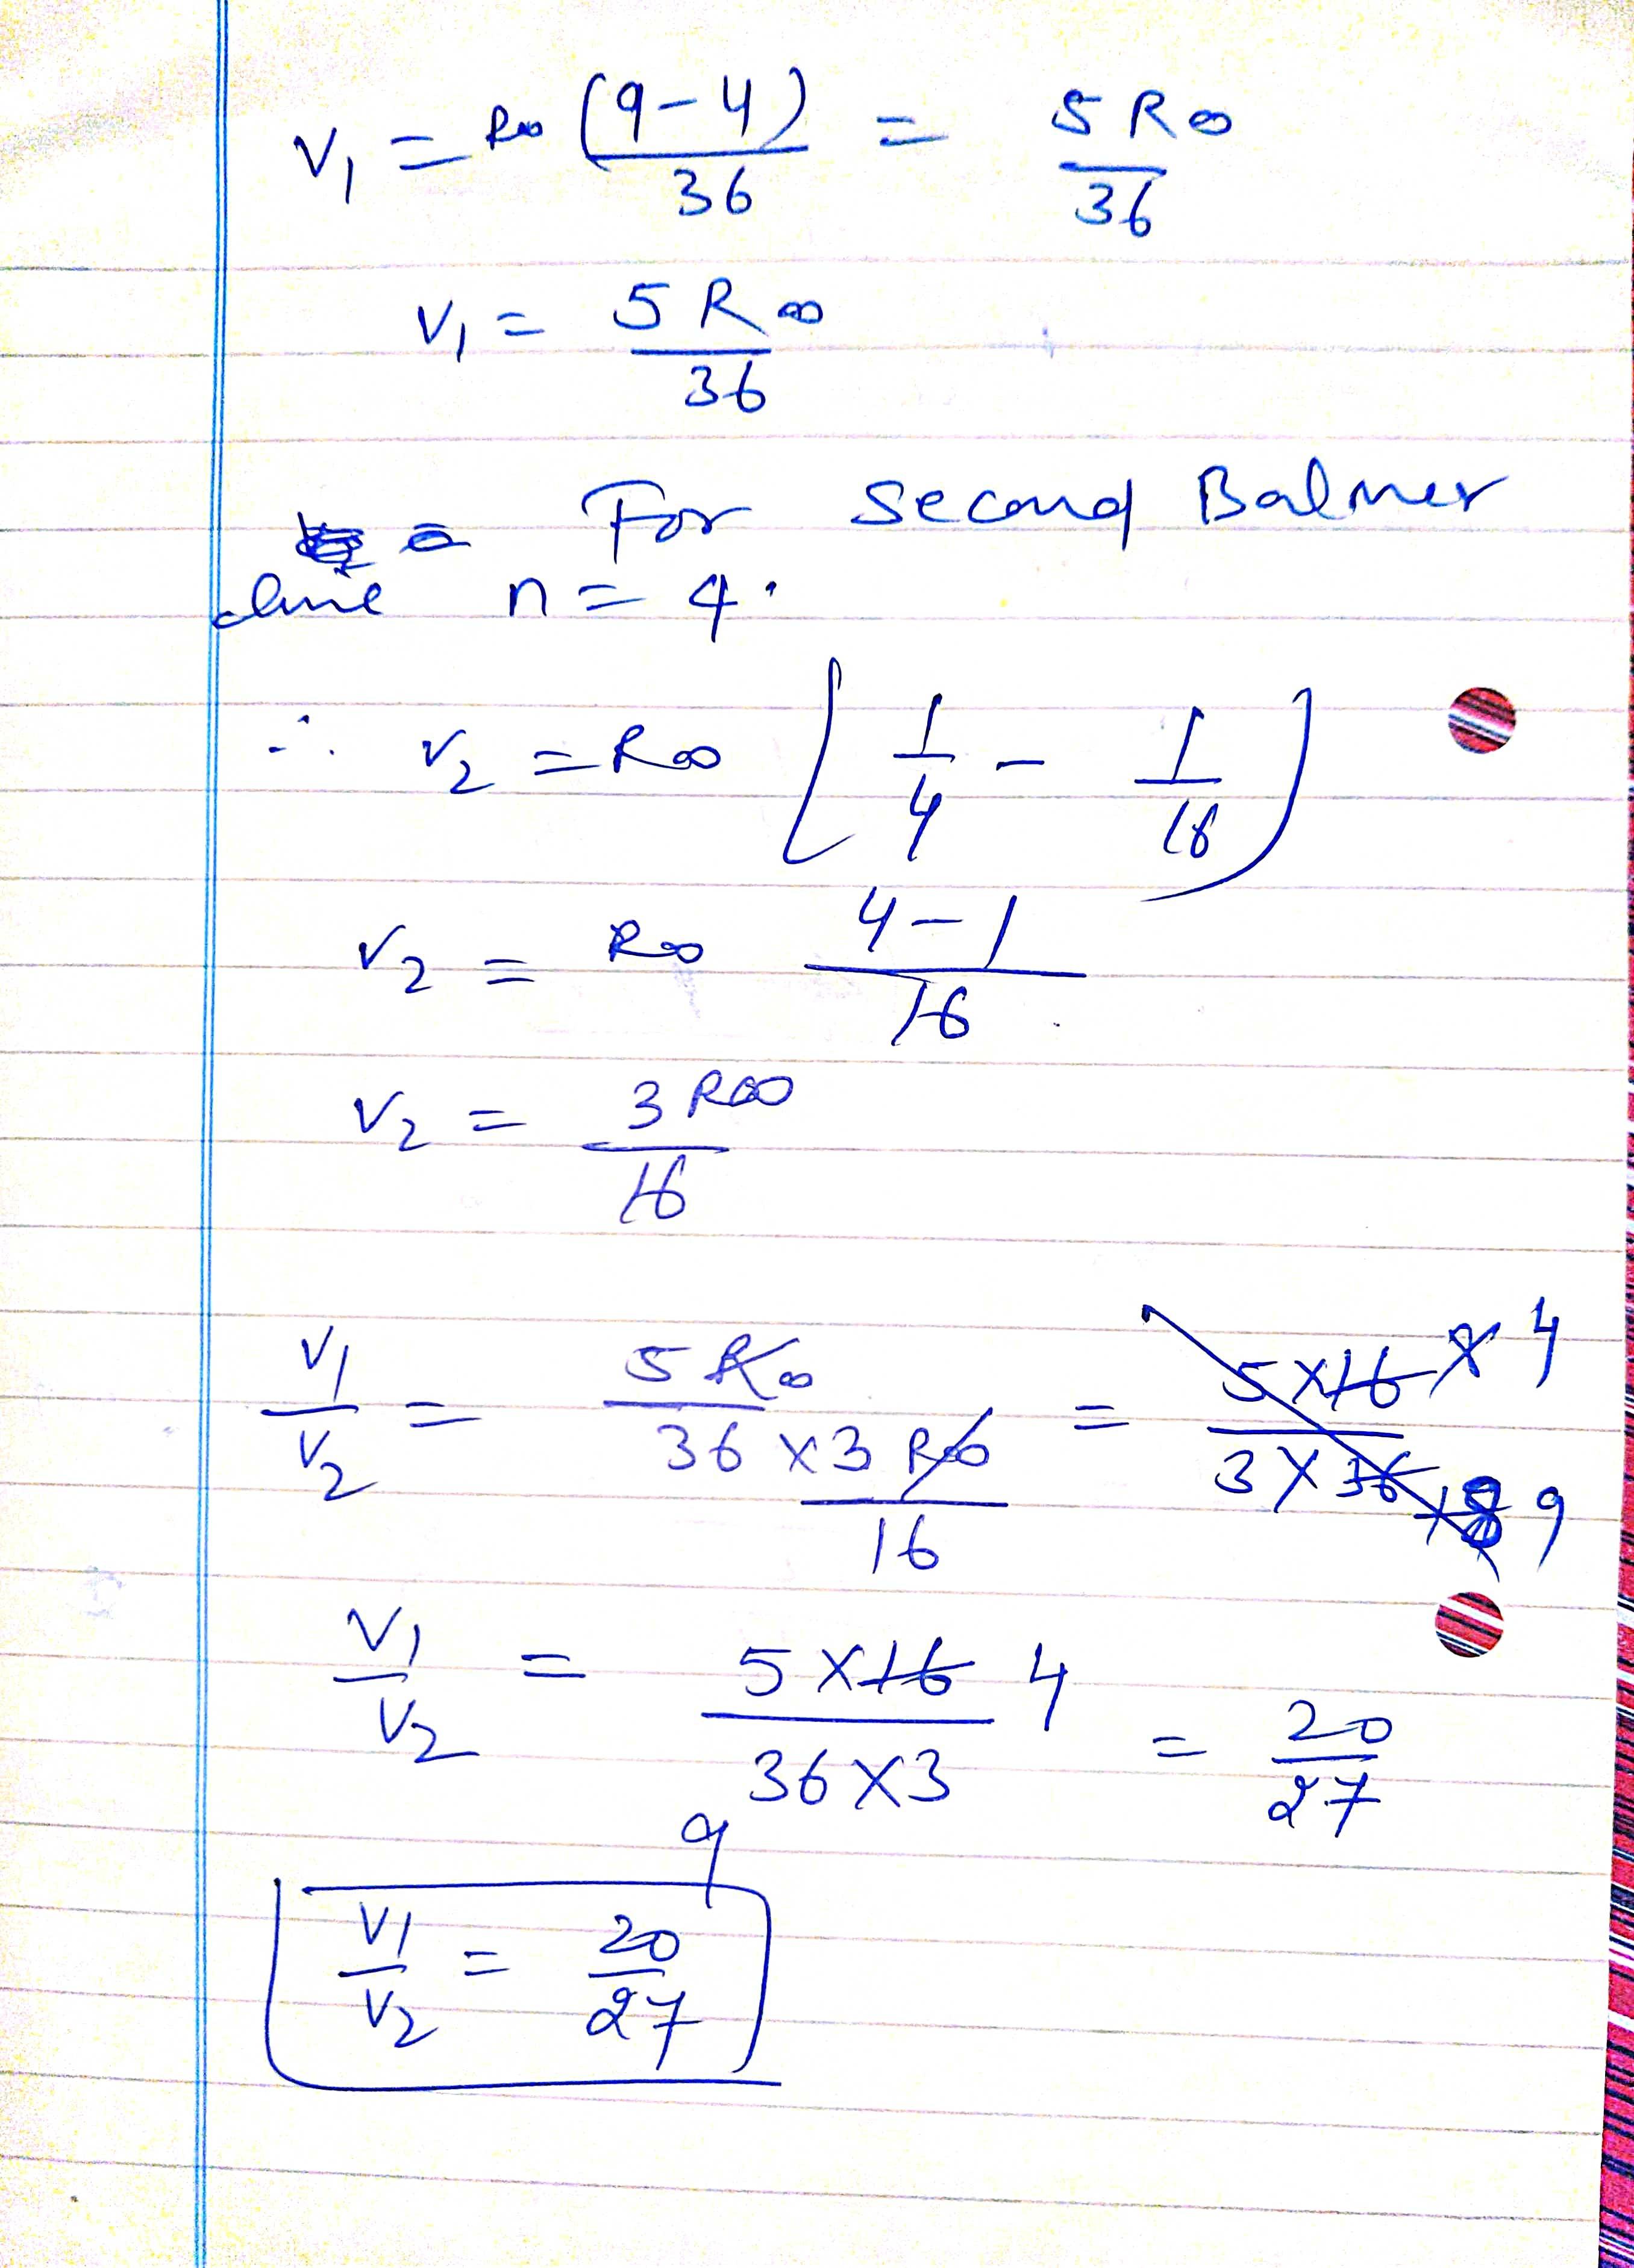 V₁ = R∞ (9-4)/36 = 5R∞/36
V₁ = 5R∞/36
= For Second Balmer
line n = 4.
∴ V₂ = R∞ [1/4 - 1/16)
V₂ = R∞ 4-1/16
V₂ = 3R∞/16
V₁/V₂ = 5R∞/36 × 3R∞/16 = 5×16×4/3×36 18 9
V₁/V₂ = 5×16 4/36×3 9 = 20/27
V₁/V₂ = 20/27